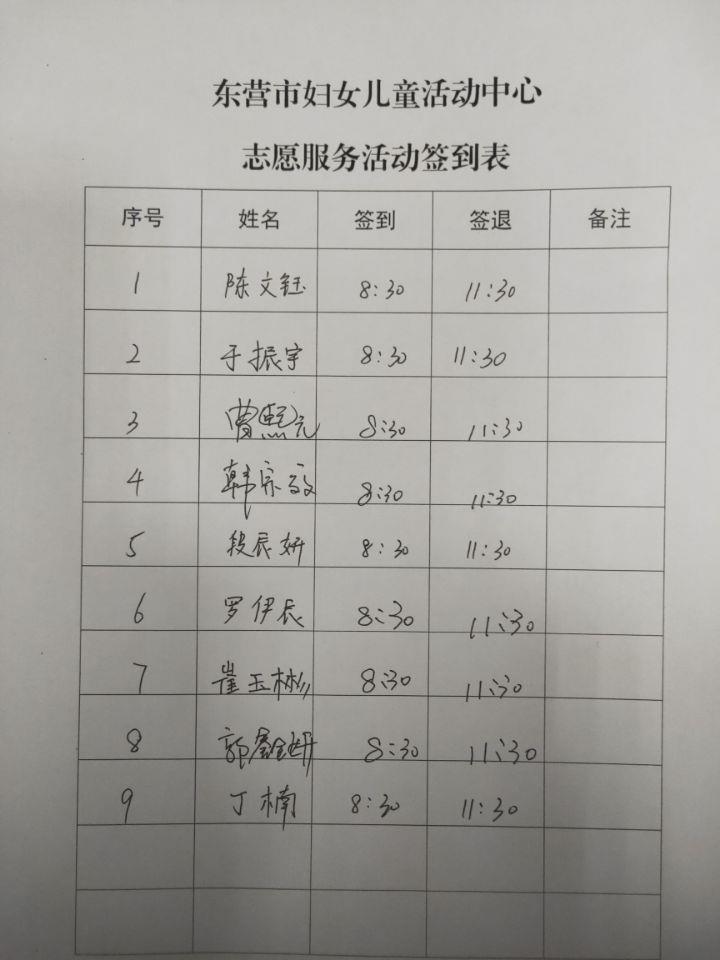 东营市妇女儿童活动中心
志愿服务活动签到表
序号 姓名 签到 签退 备注
1 陈文钰 8:30 11:30
2 于振宇 8:30 11:30
3 曹熙元 8:30 11:30
4 韩宗毅 8:30 11:30
5 段辰妍 8:30 11:30
6 罗伊辰 8:30 11:30
7 崔玉彬 8:30 11:30
8 郭鑫妍 8:30 11:30
9 丁楠 8:30 11:30